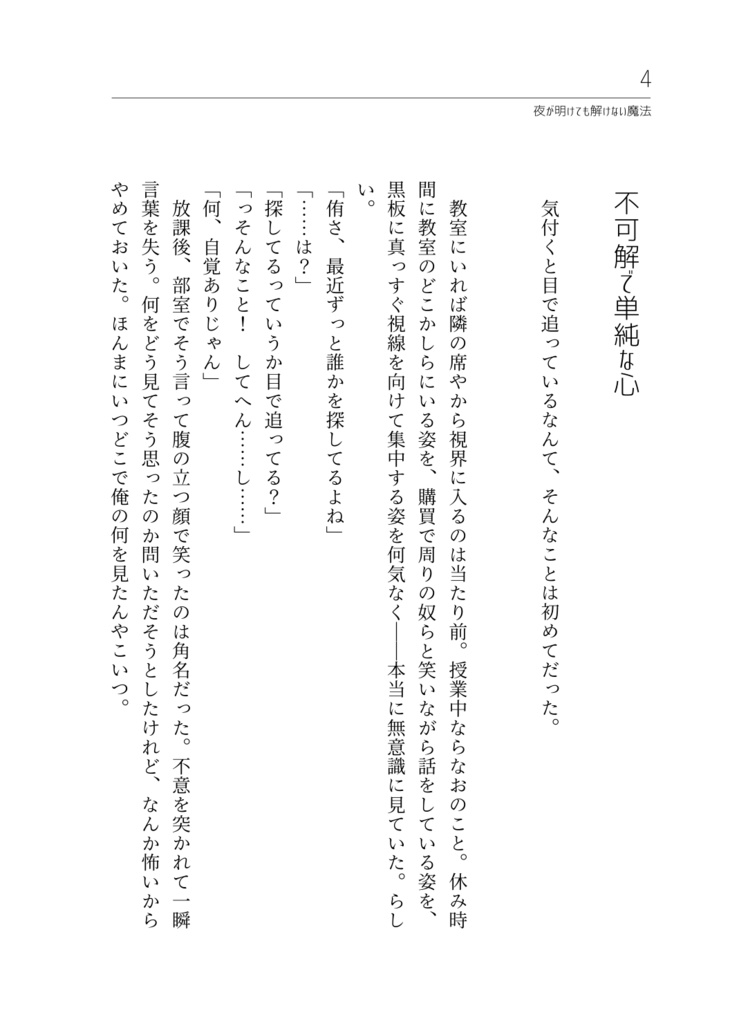 4
夜が明けても解けない魔法
不可解で単純な心
気付くと目で追っているなんて、そんなことは初めてだった。
教室にいれば隣の席やから視界に入るのは当たり前。授業中ならなおのこと。休み時
間に教室のどこかしらにいる姿を、購買で周りの奴らと笑いながら話をしている姿を、
黒板に真っすぐ視線を向けて集中する姿を何気なく――本当に無意識に見ていた。らし
い。
「侑さ、最近ずっと誰かを探してるよね」
「……は？」
「探してるっていうか目で追ってる？」
「っそんなこと！　してへん……し……」
「何、自覚ありじゃん」
放課後、部室でそう言って腹の立つ顔で笑ったのは角名だった。不意を突かれて一瞬
言葉を失う。何をどう見てそう思ったのか問いただそうとしたけれど、なんか怖いから
やめておいた。ほんまにいつどこで俺の何を見たんやこいつ。